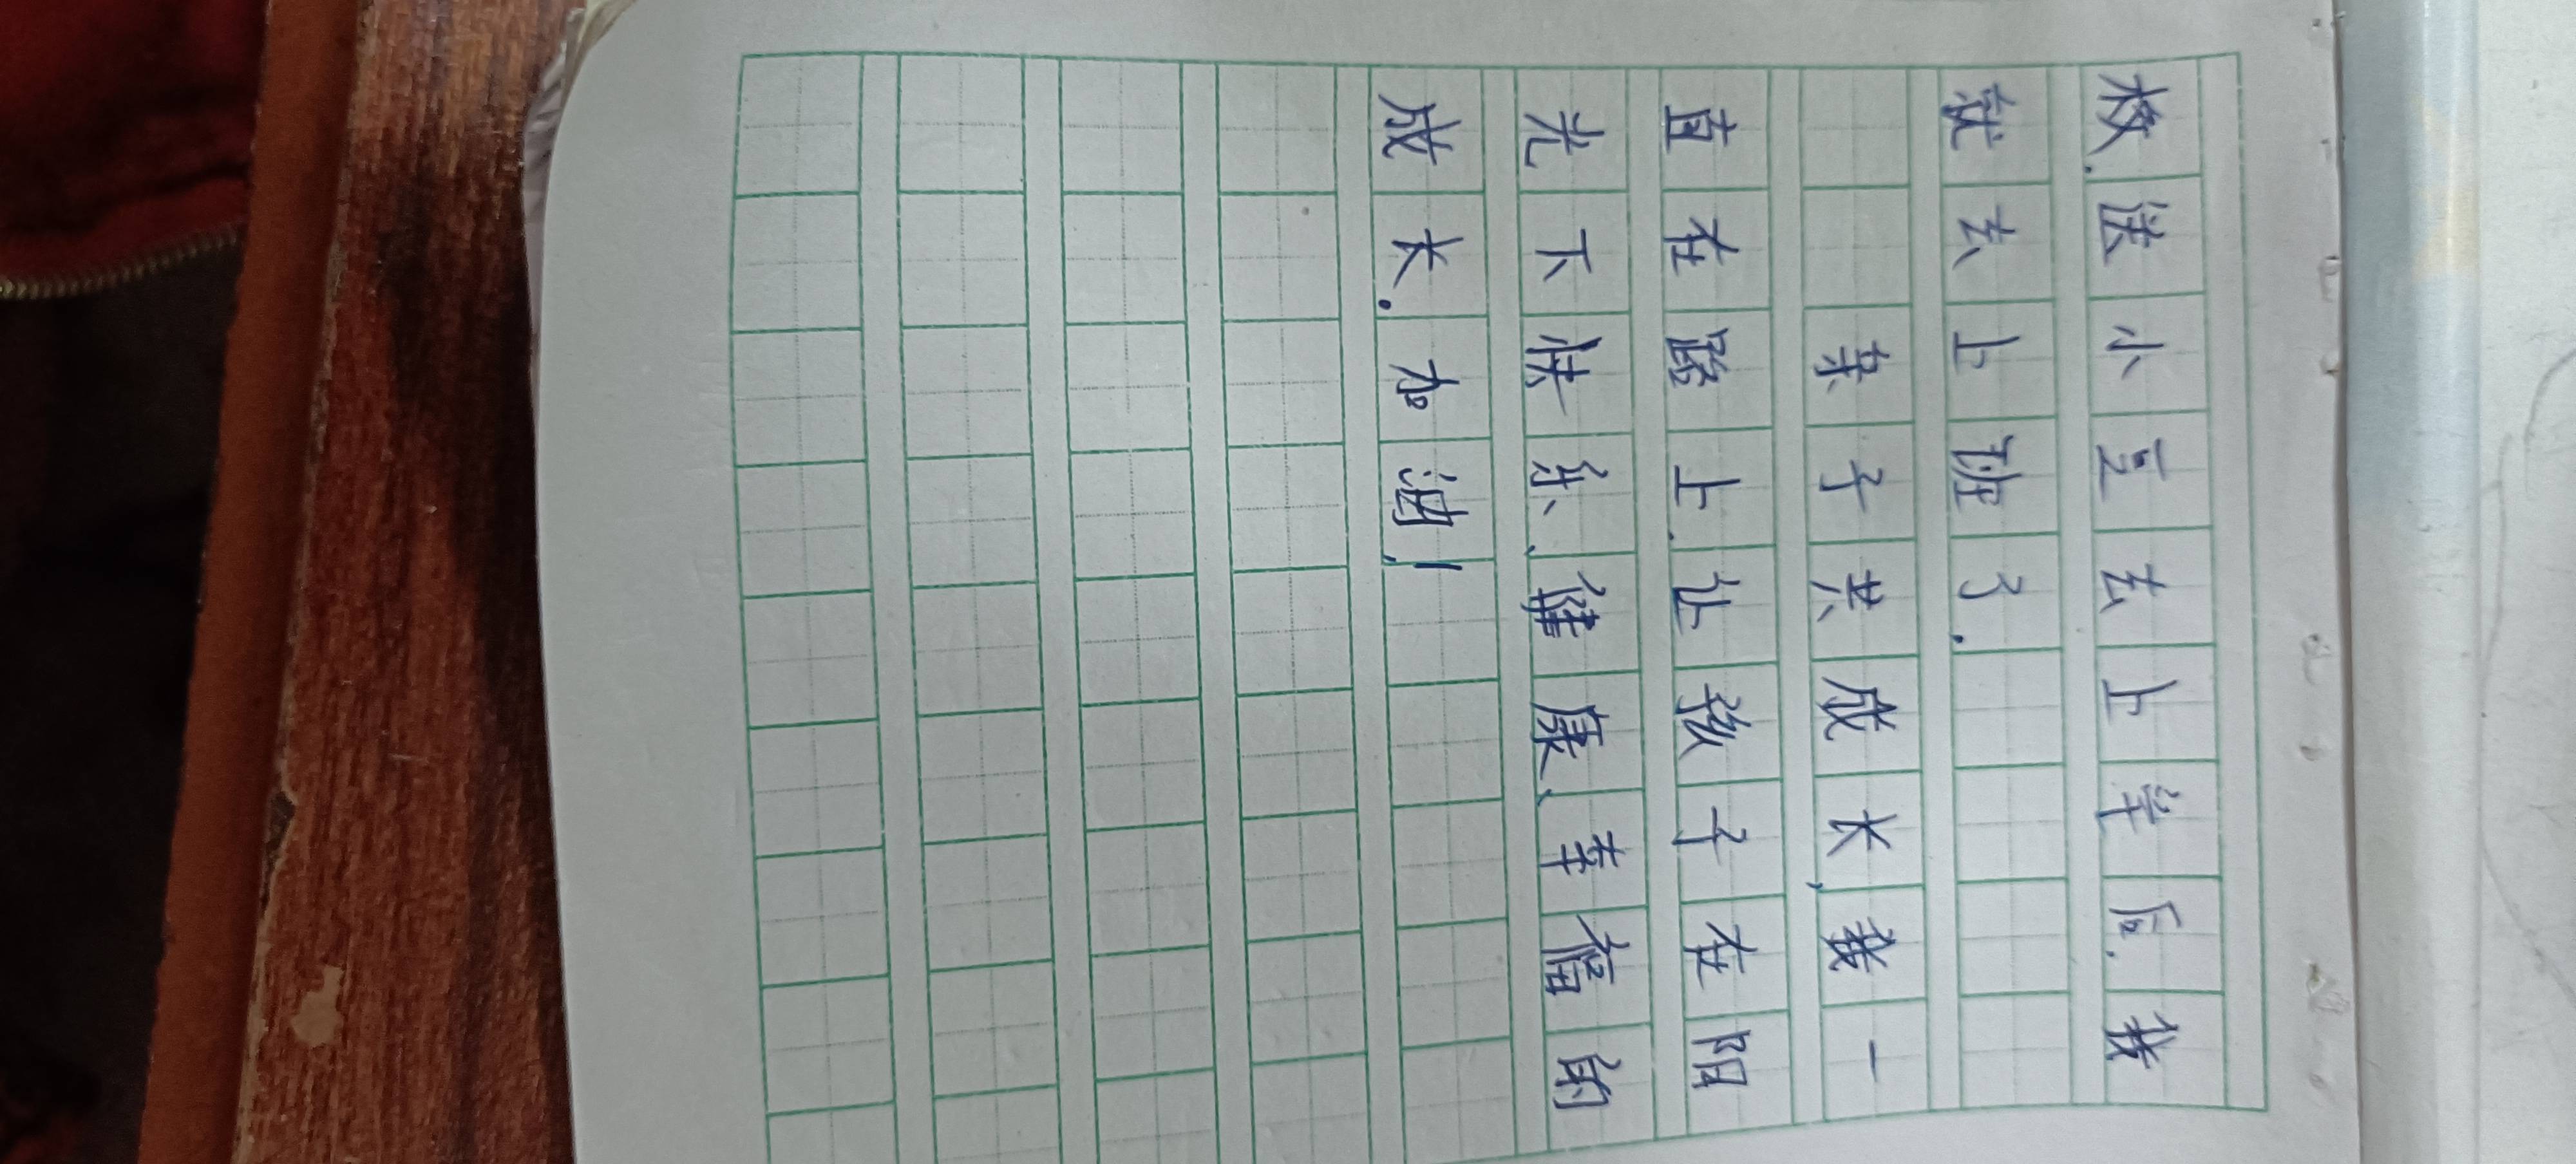 校.送小豆去上学后.我
就去上班了.
亲子共成长,我一
直在路上.让孩子在阳
光下快乐、健康、幸福的
成长.加油!